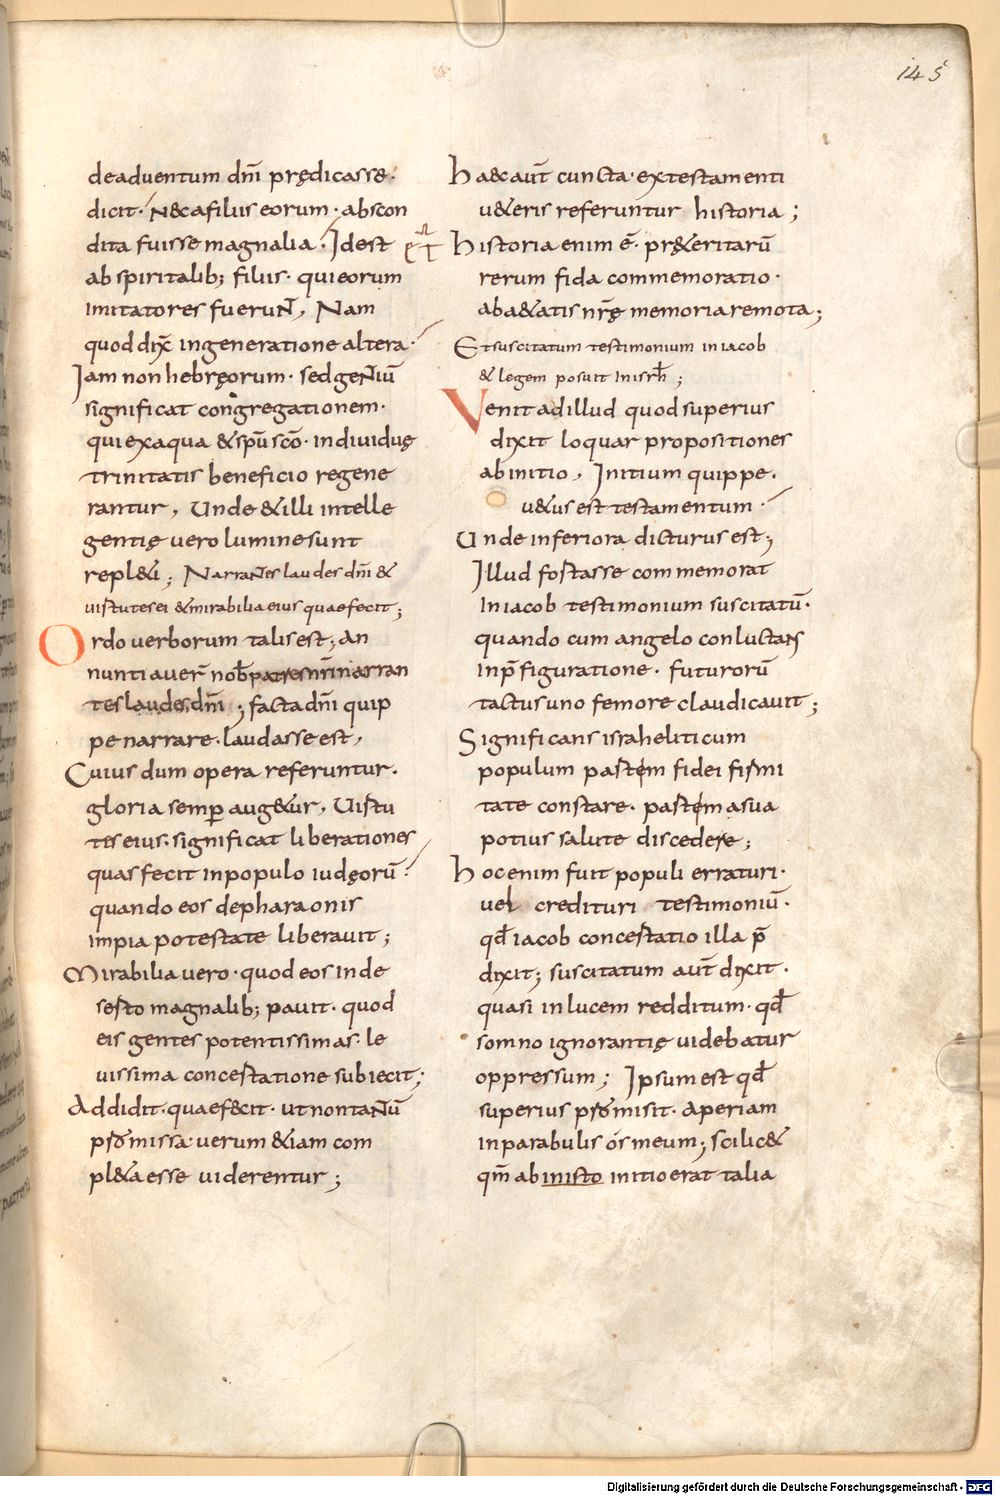 145
de aduentum dn̄i prędicasse.
dicit. N& a filiis eorum. abscon
dita fuisse magnalia. Id est
ab spiritalib; filiis. qui eorum
imitatores fuerunt, Nam
quod dix̄ in generatione altera.
Iam non hebręorum. sed gentiū
significat congregationem.
qui ex aqua & sp̄u sc̄o. individuę
trinitatis beneficio regene
rantur, Unde & illi intelle
gentię uero lumine sunt
repl&i; Narrantes laudes dn̄i &
uirtutes ei & mirabilia eius quae fecit;
Ordo uerborum talis est; an
nuntiauer̄ nob̄ patres nr̄i narran
tes laudes dn̄i; facta dn̄i quip
pe narrare. laudasse est,
Cuius dum opera referuntur.
gloria semp̄ aug&ur, Uirtu
tes eius. significat liberationes
quas fecit in populo iudęorū.
quando eos de pharaonis
impia potestate liberauit;
Mirabilia uero. quod eos in de
serto magnalib; pauit. quod
eis gentes potentissimas. le
uissima concertatione subiecit;
Addidit. quae fecit. ut non tantū
promissa. uerum &iam com
pl&a esse uiderentur;
haec aut̄ cuncta. ex testamenti
u&eris referuntur historia;
historia enim ē. pr&eritarū
rerum fida commemoratio.
ab a&atis nr̄ę memoria remota;
Et suscitatum testimonium in iacob
& legem posuit in isrl̄;
Venit ad illud quod superius
dixit loquar propositiones
ab initio, Initium quippe.
u&us est testamentum.
Unde inferiora dicturus est;
Illud fortasse commemorat
In iacob testimonium suscitatū.
quando cum angelo conluctans
in p̄figuratione. futurorū
tactus uno femore claudicauit;
Significans israheliticum
populum partem fidei firmi
tate constare. partem a sua
potius salute discedere;
hoc enim fuit populi erraturi.
uel credituri testimoniū.
qd̄ iacob concertatio illa p̄
dixit; suscitatum aut̄ dixit.
quasi in lucem redditum. qd̄
somno ignorantię uidebatur
oppressum; Ipsum est qd̄
superius promisit. Aperiam
in parabulis os meum; scilic&
qm̄ ab inisto initio erat talia
Digitalisierung gefördert durch die Deutsche Forschungsgemeinschaft - DFG